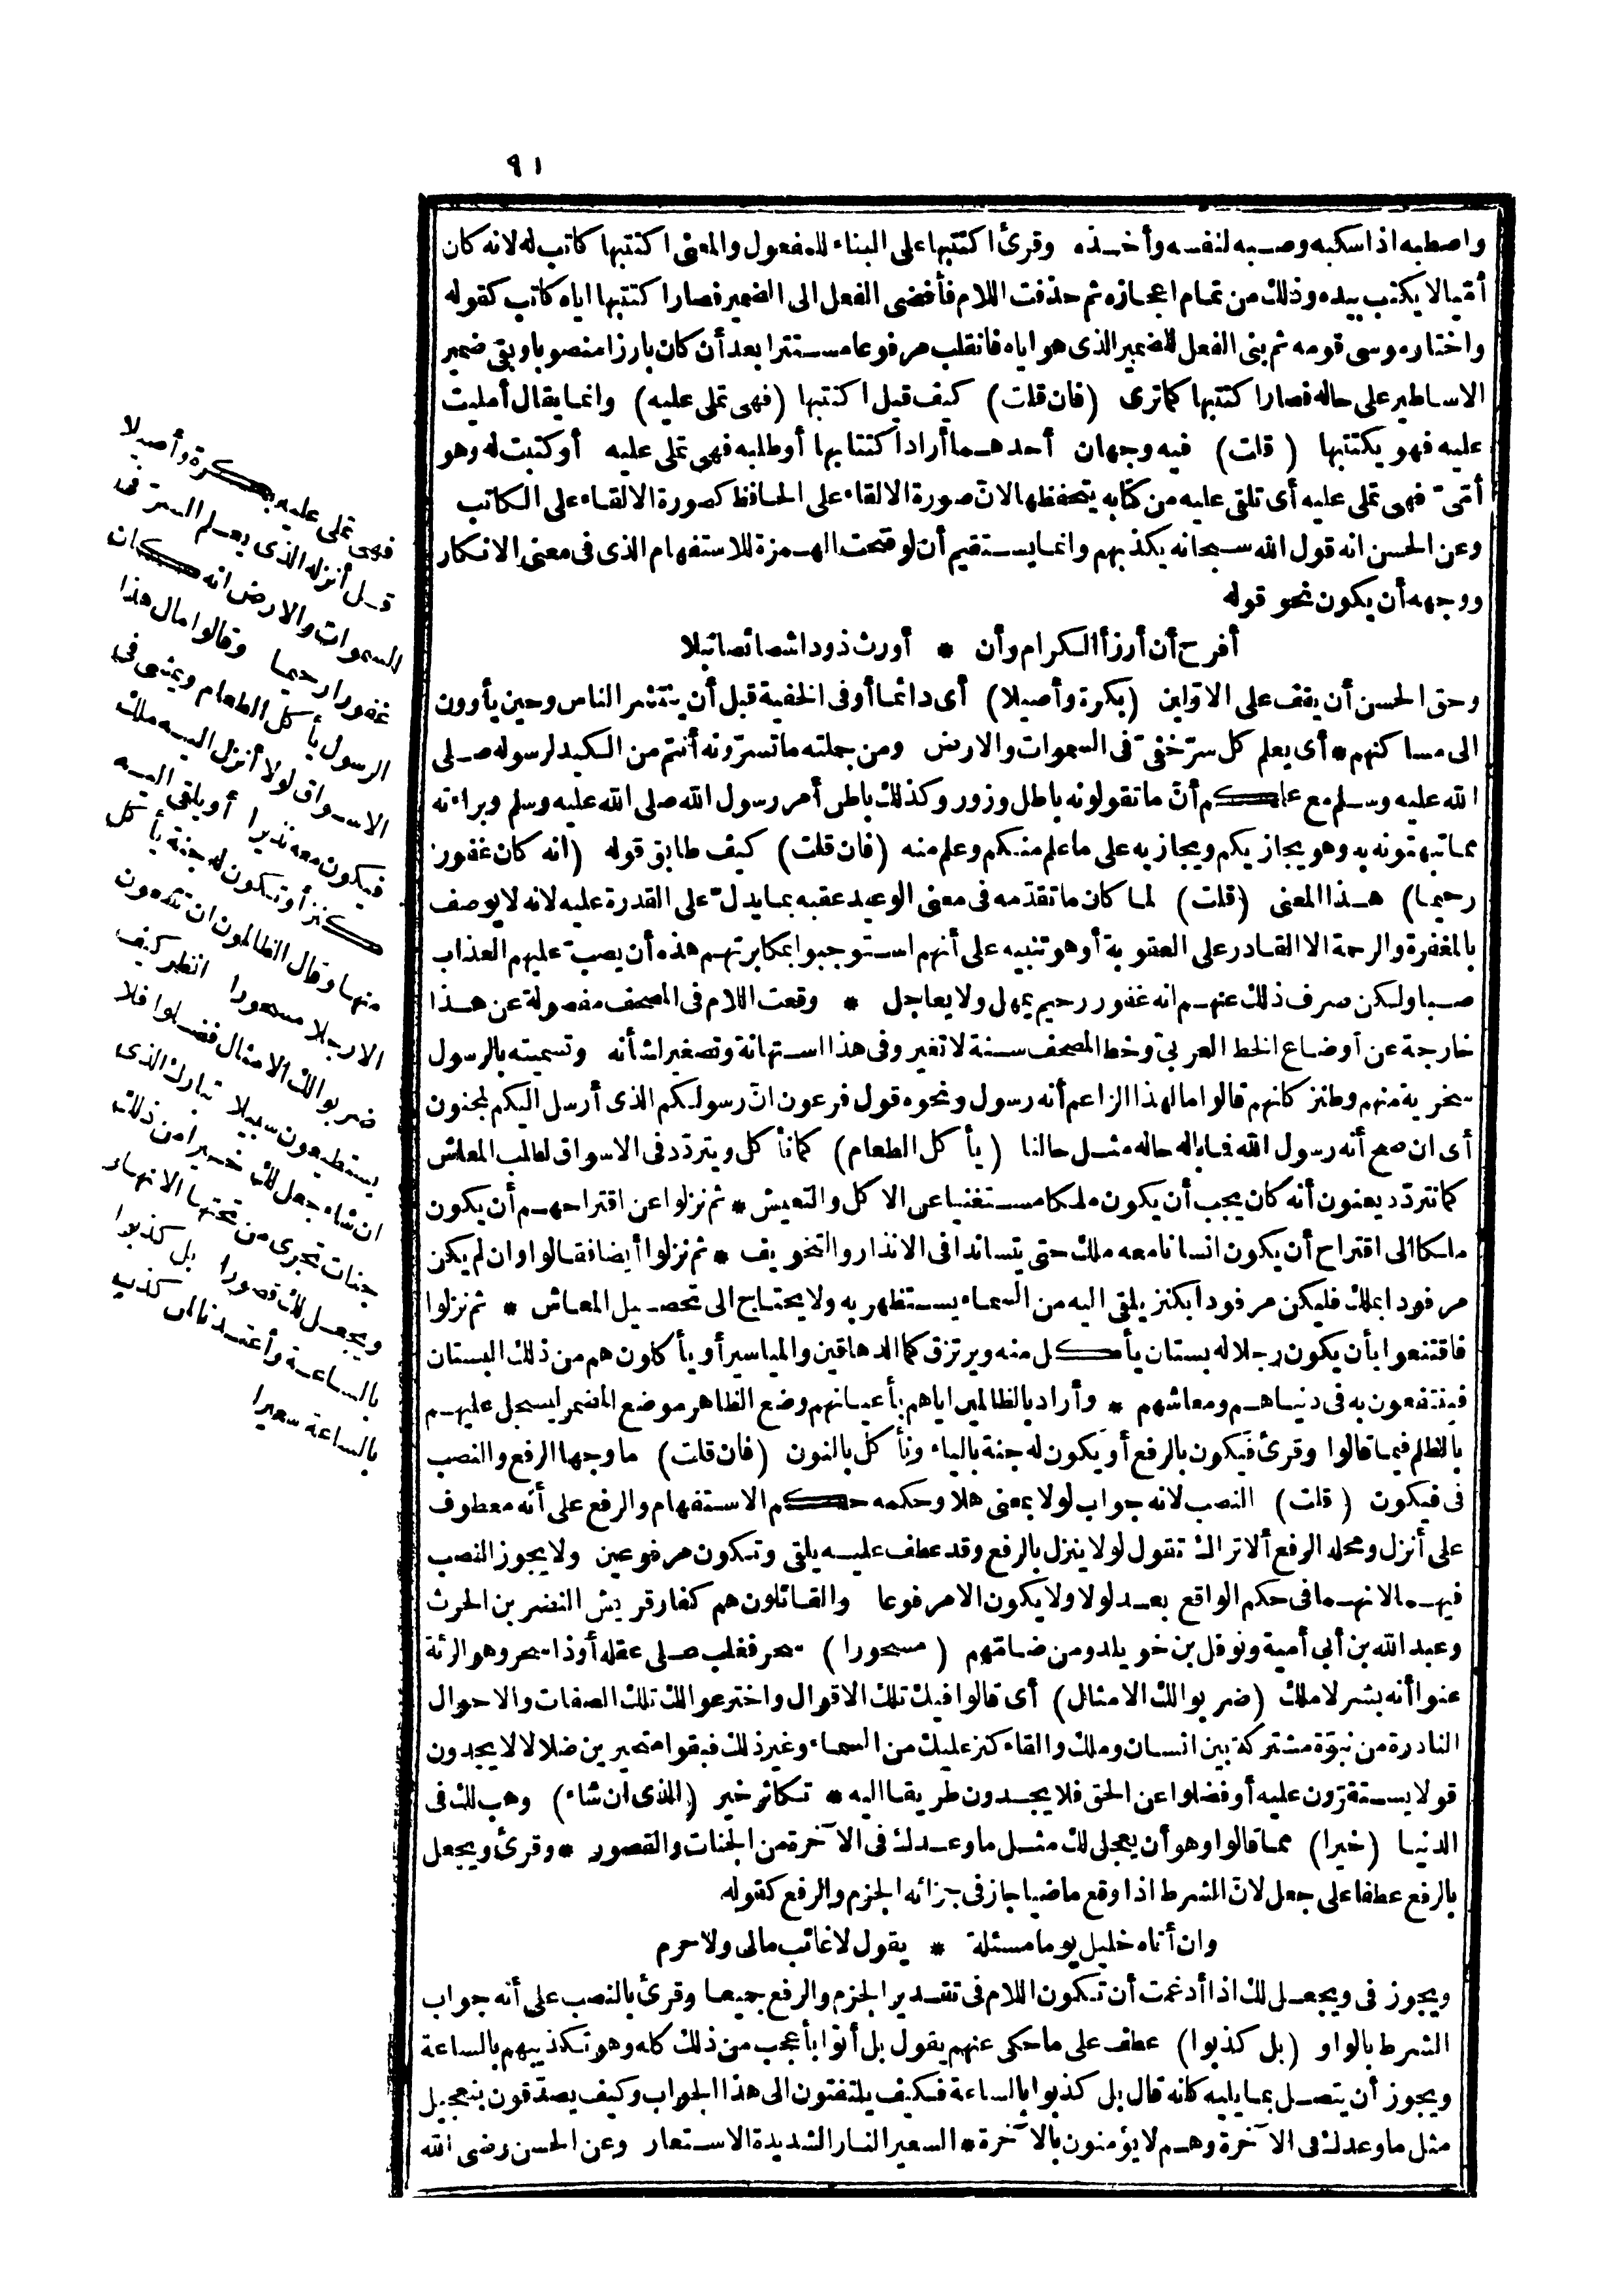 ٩١
واصطبه اذا سكبه وصبه لنفسه وأخذه وقرئ اكتتبها على البناء للمفعول والمعنى اكتتبها كاتب له لانه كان
أميا لا يكتب بيده وذلك من تمام اعجازه ثم حذفت اللام فأفضى الفعل الى الضمير فصار اكتتبها اياه كاتب كقوله
واختار موسى قومه ثم بنى الفعل للضمير الذى هو اياه فانقلب مرفوعا مستترا بعد أن كان بارزا منصوبا وبقى ضمير
الاساطير على حاله فصار اكتتبها كما ترى (فان قلت) كيف قيل اكتتبها (فهى تملى عليه) وانما يقال أمليت
عليه فهو يكتتبها (قلت) فيه وجهان أحدهما أراد اكتتابها أو طلبه فهى تملى عليه أو كتبت له وهو
أمّىّ فهى تملى عليه أى تلقى عليه من كتابه يتحفظها لانّ صورة الالقاء على الحافظ كصورة الالقاء على الكاتب
وعن الحسن انه قول الله سبحانه يكذبهم وانما يستقيم أن لو فتحت الهمزة للاستفهام الذى فى معنى الانكار
ووجهه أن يكون نحو قوله
أفرح أن أرزأ الكرام وأن * أورث ذودا شصائصا نبلا
وحق الحسن أن يقف على الاوّلين (بكرة وأصيلا) أى دائما أو فى الخفية قبل أن ينتشر الناس وحين يأوون
الى مساكنهم * أى يعلم كل سرّ خفىّ فى السموات والارض ومن جملته ما تسرّونه أنتم من الكيد لرسوله صلى
الله عليه وسلم مع علمكم أنّ ما تقولونه باطل وزور وكذلك باطن أمر رسول الله صلى الله عليه وسلم وبراءته
مما تبهتونه به وهو يجازيكم ويجازيه على ما علم منكم وعلم منه (فان قلت) كيف طابق قوله (انه كان غفورا
رحيما) هذا المعنى (قلت) لما كان ما تقدّمه فى معنى الوعيد عقبه بما يدلّ على القدرة عليه لانه لا يوصف
بالمغفرة والرحمة الا القادر على العقوبة أو هو تنبيه على أنهم استوجبوا بمكابرتهم هذه أن يصبّ عليهم العذاب
صبا ولكن صرف ذلك عنهم انه غفور رحيم يمهل ولا يعاجل * وقعت اللام فى المصحف مفصولة عن هذا
خارجة عن أوضاع الخط العربىّ وخط المصحف سنة لا تغير وفى هذا استهانة وتصغير لشأنه وتسميته بالرسول
سخرية منهم وطنز كانهم قالوا ما لهذا الزاعم أنه رسول ونحوه قول فرعون انّ رسولكم الذى أرسل اليكم لمجنون
أى ان صح أنه رسول الله فما باله حاله مثل حالنا (يأكل الطعام) كما نأكل ويتردّد فى الاسواق لطلب المعاش
كما نتردّد يعنون أنه كان يجب أن يكون ملكا مستغنيا عن الاكل والتعيش * ثم نزلوا عن اقتراحهم أن يكون
ملكا الى اقتراح أن يكون انسانا معه ملك حتى يتساندا فى الانذار والتخويف * ثم نزلوا أيضا فقالوا وان لم يكن
مرفودا بملك فليكن مرفودا بكنز يلقى اليه من السماء يستظهر به ولا يحتاج الى تحصيل المعاش * ثم نزلوا
فاقتنعوا بأن يكون رجلا له بستان يأكل منه ويرتزق كما الدهاقين والمياسير أو يأكلون هم من ذلك البستان
فينتفعون به فى دنياهم ومعاشهم * وأراد بالظالمين اياهم بأعيانهم وضع الظاهر موضع المضمر ليسجل عليهم
بالظلم فيما قالوا وقرئ فيكون بالرفع أو يكون له جنة بالياء ونأكل بالنون (فان قلت) ما وجها الرفع والنصب
فى فيكون (قلت) النصب لانه جواب لولا بمعنى هلا وحكمه حكم الاستفهام والرفع على أنه معطوف
على أنزل ومحله الرفع ألا تراك تقول لولا ينزل بالرفع وقد عطف عليه يلقى وتكون مرفوعين ولا يجوز النصب
فيهما لانهما فى حكم الواقع بعد لولا ولا يكون الا مرفوعا والقائلون هم كفار قريش النضر بن الحرث
وعبد الله بن أبى أمية ونوفل بن خويلد ومن ضامّهم (مسحورا) سحر فغلب على عقله أو ذا سحر وهو الرئة
عنوا أنه بشر لا ملك (ضربوا لك الامثال) أى قالوا فيك تلك الاقوال واخترعوا لك تلك الصفات والاحوال
النادرة من نبوّة مشتركة بين انسان وملك والقاء كنز عليك من السماء وغير ذلك فبقوا متحيرين ضلالا لا يجدون
قولا يستقرّون عليه أو فضلوا عن الحق فلا يجدون طريقا اليه * تكاثر خير (الذى ان شاء) وهب لك فى
الدنيا (خيرا) مما قالوا وهو أن يعجل لك مثل ما وعدك فى الآخرة من الجنات والقصور * وقرئ ويجعل
بالرفع عطفا على جعل لانّ الشرط اذا وقع ماضيا جاز فى جزائه الجزم والرفع كقوله
وان أتاه خليل يوم مسئلة * يقول لا غائب مالى ولا حرم
ويجوز فى ويجعل لك اذا أدغمت أن تكون اللام فى تقدير الجزم والرفع جميعا وقرئ بالنصب على أنه جواب
الشرط بالواو (بل كذبوا) عطف على ما حكى عنهم يقول بل أتوا بأعجب من ذلك كله وهو تكذيبهم بالساعة
ويجوز أن يتصل بما يليه كانه قال بل كذبوا بالساعة فكيف يلتفتون الى هذا الجواب وكيف يصدّقون بتعجيل
مثل ما وعدك فى الآخرة وهم لا يؤمنون بالآخرة * السعير النار الشديدة الاستعار وعن الحسن رضى الله
فهى تملى عليه بكرة وأصيلا
قل أنزله الذى يعلم السر فى
السموات والارض انه كان
غفورا رحيما وقالوا مال هذا
الرسول يأكل الطعام ويمشى فى
الاسواق لولا أنزل اليه ملك
فيكون معه نذيرا أو يلقى اليه
كنز أو تكون له جنة يأكل
منها وقال الظالمون ان تتبعون
الا رجلا مسحورا انظر كيف
ضربوا لك الامثال فضلوا فلا
يستطيعون سبيلا تبارك الذى
ان شاء جعل لك خيرا من ذلك
جنات تجرى من تحتها الانهار
ويجعل لك قصورا بل كذبوا
بالساعة وأعتدنا لمن كذب
بالساعة سعيرا